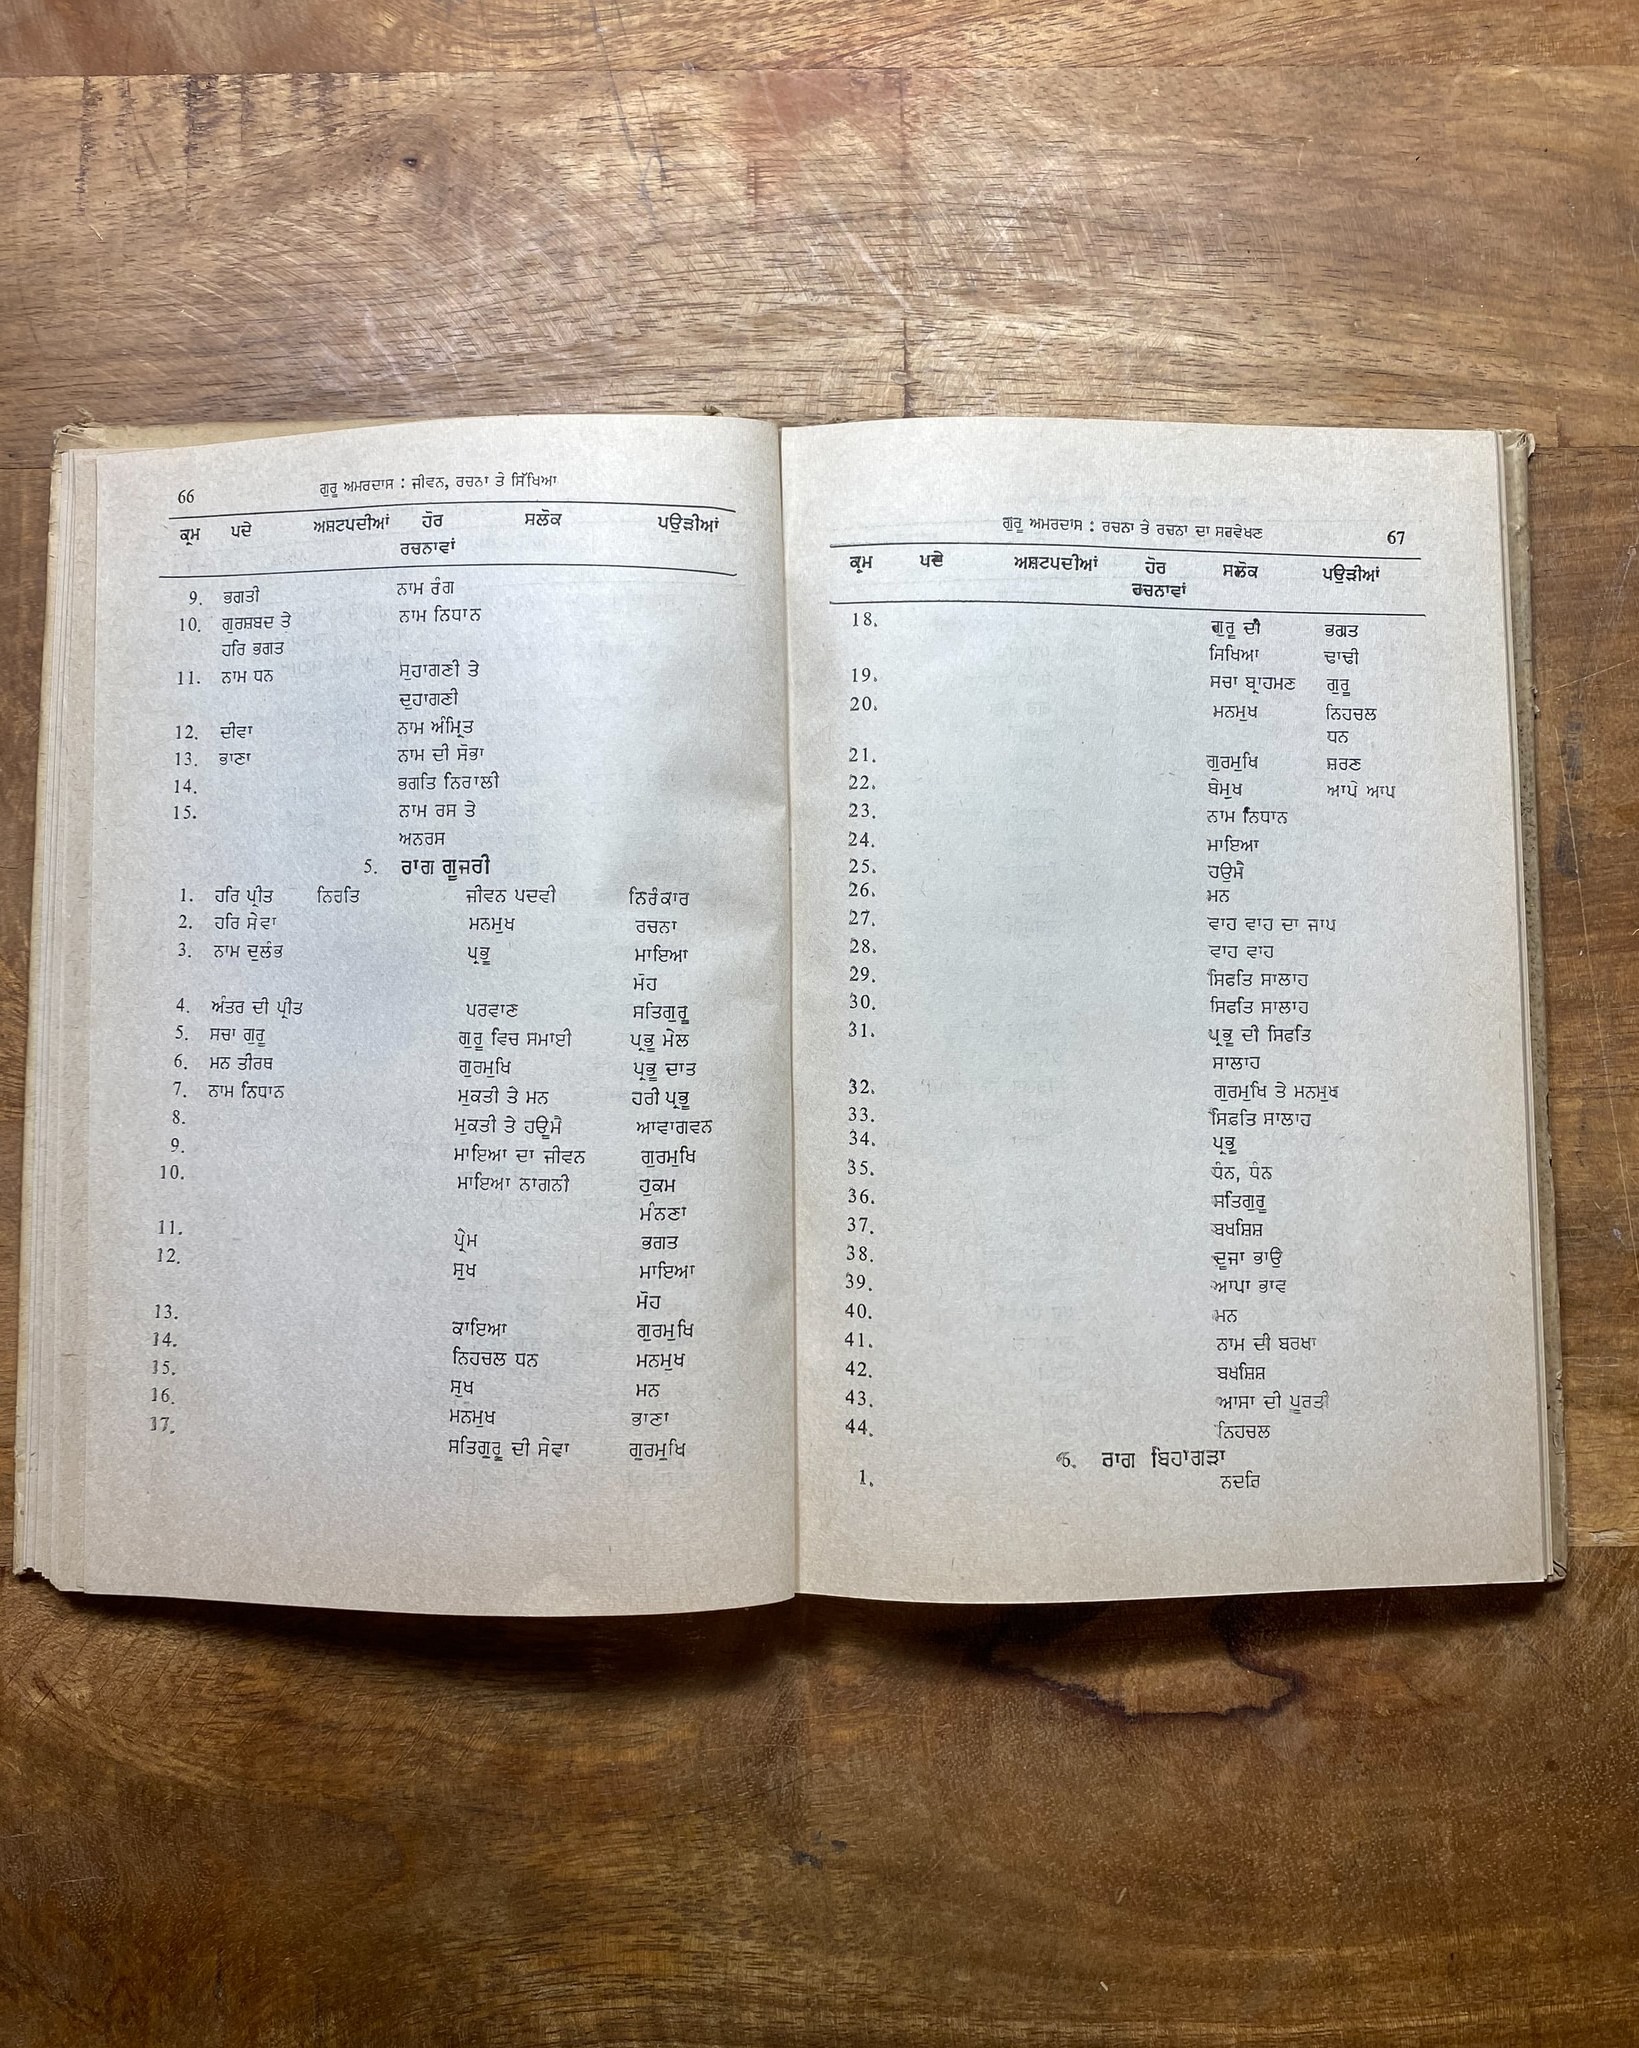 66 ਗੁਰੂ ਅਮਰਦਾਸ : ਜੀਵਨ, ਰਚਨਾ ਤੇ ਸਿੱਖਿਆ
ਕ੍ਰਮ ਪਦੇ ਅਸ਼ਟਪਦੀਆਂ ਹੋਰ ਸਲੋਕ ਪਉੜੀਆਂ
ਰਚਨਾਵਾਂ
9. ਭਗਤੀ ਨਾਮ ਰੰਗ
10. ਗੁਰਸ਼ਬਦ ਤੇ ਨਾਮ ਨਿਧਾਨ
ਹਰਿ ਭਗਤ
11. ਨਾਮ ਧਨ ਸੁਹਾਗਣੀ ਤੇ
ਦੁਹਾਗਣੀ
12. ਦੀਵਾ ਨਾਮ ਅੰਮ੍ਰਿਤ
13. ਭਾਣਾ ਨਾਮ ਦੀ ਸੋਭਾ
14. ਭਗਤਿ ਨਿਰਾਲੀ
15. ਨਾਮ ਰਸ ਤੇ
ਅਨਰਸ
5. ਰਾਗ ਗੂਜਰੀ
1. ਹਰਿ ਪ੍ਰੀਤ ਨਿਰਤਿ ਜੀਵਨ ਪਦਵੀ ਨਿਰੰਕਾਰ
2. ਹਰਿ ਸੇਵਾ ਮਨਮੁਖ ਰਚਨਾ
3. ਨਾਮ ਦੁਲੰਭ ਪ੍ਰਭੂ ਮਾਇਆ
ਮੋਹ
4. ਅੰਤਰ ਦੀ ਪ੍ਰੀਤ ਪਰਵਾਣ ਸਤਿਗੁਰੂ
5. ਸਚਾ ਗੁਰੂ ਗੁਰੂ ਵਿਚ ਸਮਾਈ ਪ੍ਰਭੂ ਮੇਲ
6. ਮਨ ਤੀਰਥ ਗੁਰਮੁਖਿ ਪ੍ਰਭੂ ਦਾਤ
7. ਨਾਮ ਨਿਧਾਨ ਮੁਕਤੀ ਤੇ ਮਨ ਹਰੀ ਪ੍ਰਭੂ
8. ਮੁਕਤੀ ਤੇ ਹਊਮੈ ਆਵਾਗਵਨ
9. ਮਾਇਆ ਦਾ ਜੀਵਨ ਗੁਰਮੁਖਿ
10. ਮਾਇਆ ਨਾਗਨੀ ਹੁਕਮ
ਮੰਨਣਾ
11. ਪ੍ਰੇਮ ਭਗਤ
12. ਸੁਖ ਮਾਇਆ
ਮੋਹ
13. ਕਾਇਆ ਗੁਰਮੁਖਿ
14. ਨਿਹਚਲ ਧਨ ਮਨਮੁਖ
15. ਸੁਖ ਮਨ
16. ਮਨਮੁਖ ਭਾਣਾ
17. ਸਤਿਗੁਰੂ ਦੀ ਸੇਵਾ ਗੁਰਮੁਖਿ
ਗੁਰੂ ਅਮਰਦਾਸ : ਰਚਨਾ ਤੇ ਰਚਨਾ ਦਾ ਸਰਵੇਖਣ 67
ਕ੍ਰਮ ਪਦੇ ਅਸ਼ਟਪਦੀਆਂ ਹੋਰ ਸਲੋਕ ਪਉੜੀਆਂ
ਰਚਨਾਵਾਂ
18. ਗੁਰੂ ਦੀ ਭਗਤ
ਸਿਖਿਆ ਢਾਢੀ
19. ਸਚਾ ਬ੍ਰਾਹਮਣ ਗੁਰੂ
20. ਮਨਮੁਖ ਨਿਹਚਲ
ਧਨ
21. ਗੁਰਮੁਖਿ ਸ਼ਰਣ
22. ਬੇਮੁਖ ਆਪੇ ਆਪ
23. ਨਾਮ ਨਿਧਾਨ
24. ਮਾਇਆ
25. ਹਉਮੈ
26. ਮਨ
27. ਵਾਹ ਵਾਹ ਦਾ ਜਾਪ
28. ਵਾਹ ਵਾਹ
29. ਸਿਫਤਿ ਸਾਲਾਹ
30. ਸਿਫਤਿ ਸਾਲਾਹ
31. ਪ੍ਰਭੂ ਦੀ ਸਿਫਤਿ
ਸਾਲਾਹ
32. ਗੁਰਮੁਖਿ ਤੇ ਮਨਮੁਖ
33. ਸਿਫ਼ਤਿ ਸਾਲਾਹ
34. ਪ੍ਰਭੂ
35. ਧੰਨ, ਧੰਨ
36. ਸਤਿਗੁਰੂ
37. ਬਖਸ਼ਿਸ਼
38. ਦੂਜਾ ਭਾਉ
39. ਆਪਾ ਭਾਵ
40. ਮਨ
41. ਨਾਮ ਦੀ ਬਰਖਾ
42. ਬਖਸ਼ਿਸ਼
43. ਆਸਾ ਦੀ ਪੂਰਤੀ
44. ਨਿਹਚਲ
6. ਰਾਗ ਬਿਹਾਗੜਾ
1. ਨਦਰਿ